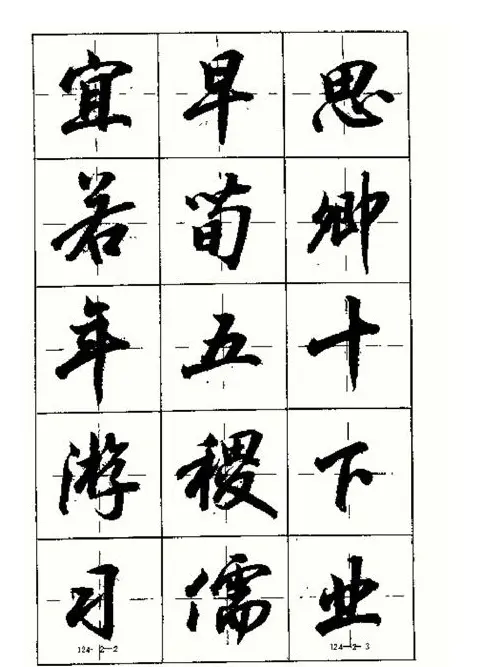 宜早思
若荀卿
年五十
游稷下
习儒业
124-2-2 124-2-3